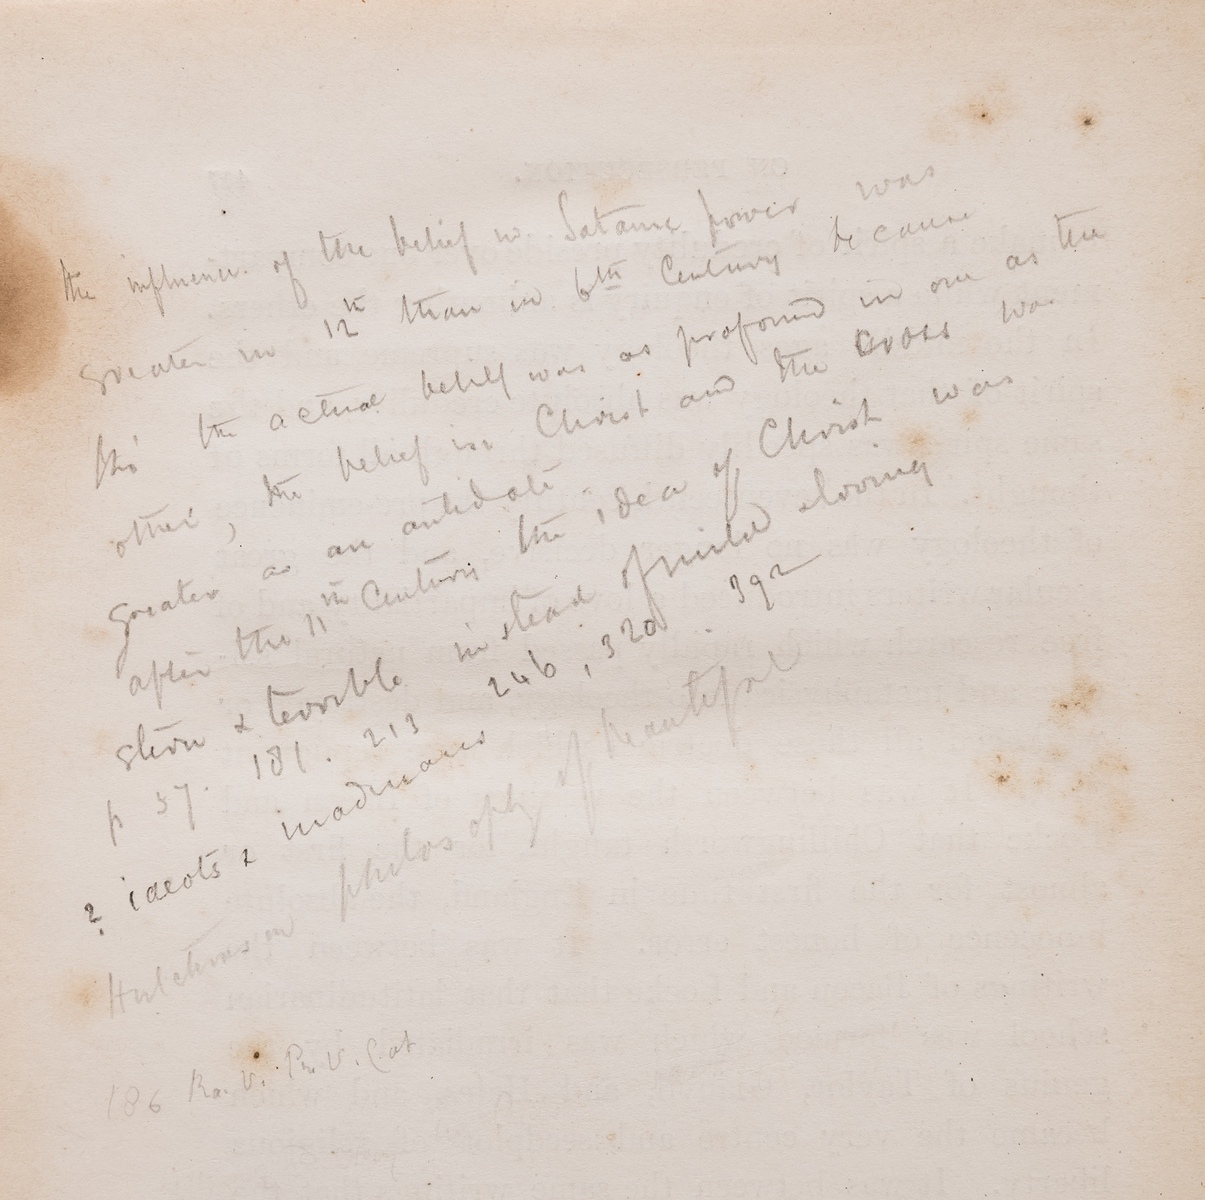 the influence of the belief in Satanic power was
greater in 12th than in 6th Century because
tho' the actual belief was as profound in one as the
other, the belief in Christ and the Cross was
greater as an antidote.
after the 11th Century the idea of Christ was
stern & terrible instead of mild & loving
p 57. 181. 213 246, 320. 392
? ideots & madmans
Hutcheson philosophy of beautiful
186 Ra. V. Pr. V. Cat